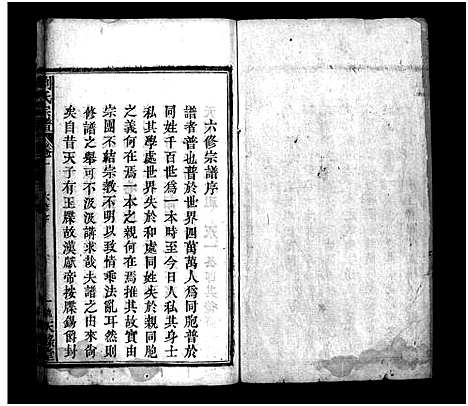 六修宗譜序
譜者普也普於世界四萬萬人爲同胞普於
同姓千百世爲一本時至今日人私其身士
私其學處世界失於和處同姓失於親同胞
之義何在焉一本之親何在焉推其故實由
宗團不結宗教不明以致情乖法亂耳然則
修譜之舉可不汲汲講求哉夫譜之由來尙
矣自昔天子有玉牒故漢獻帝按牒錫爵封